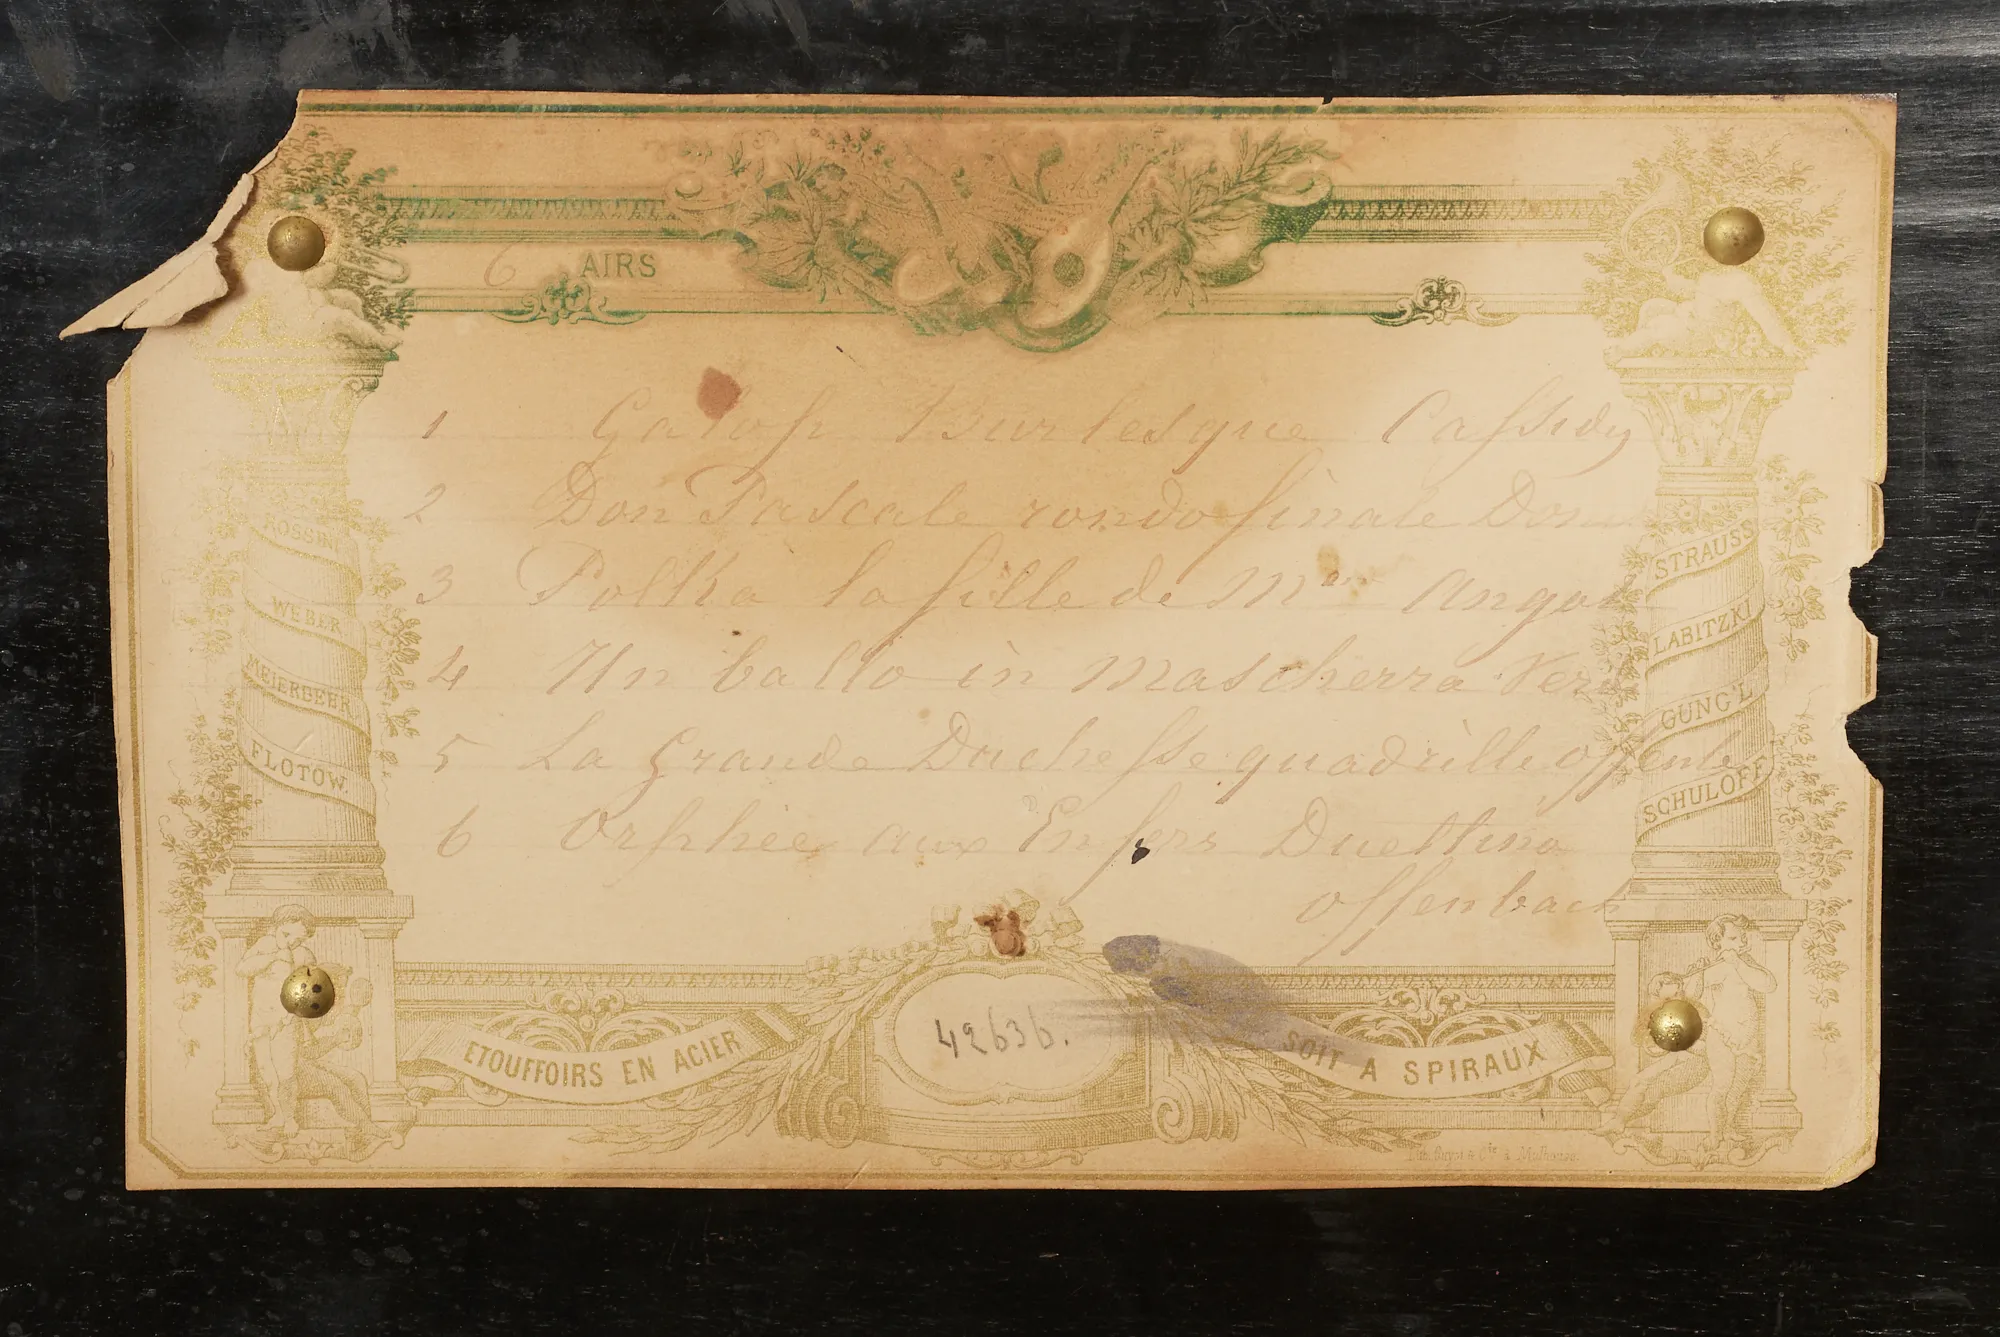 6 AIRS
1 Galop Burlesque Cassidy
2 Don Pascale rondo finale Don
3 Polka la fille de Mme Angot
4 Un ballo in Mascherra Verd
5 La Grande Duchesse quadrille offenb
6 Orphée aux Enfers Duettino
offenbach
ROSSINI
WEBER
MEIERBEER
FLOTOW.
STRAUSS
LABITZKI
GUNG'L
SCHULOFF
ETOUFFOIRS EN ACIER
42636.
SOIT A SPIRAUX